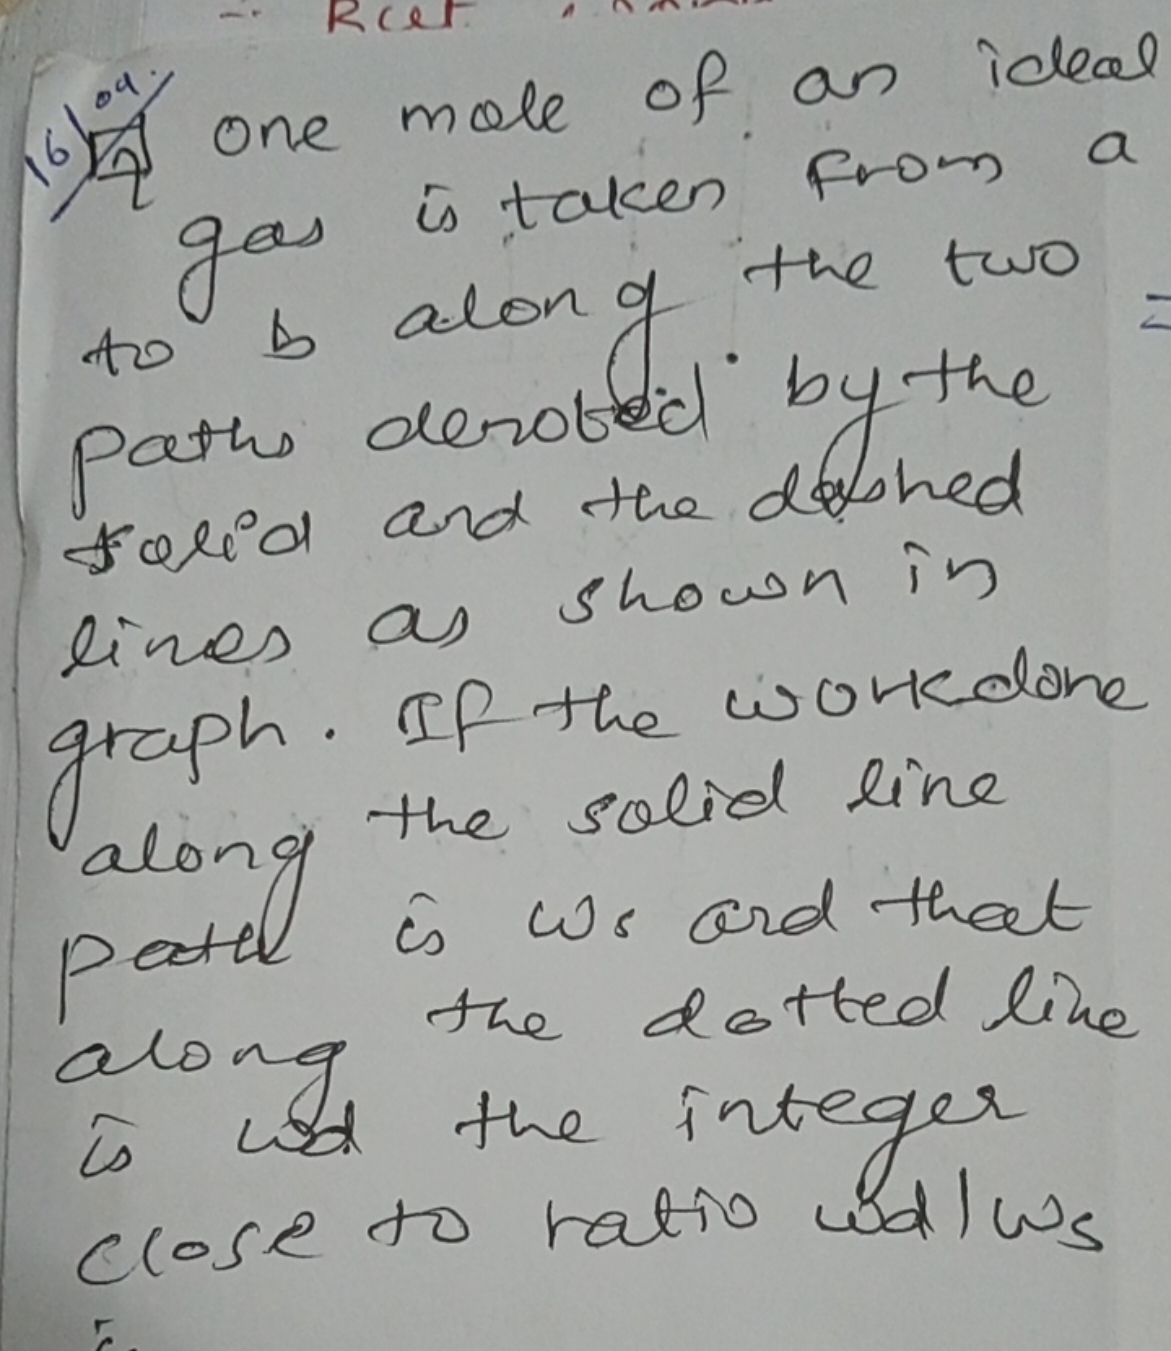 ∴ Rcet
16/09
one mole of an ideal
gas is taken from a
to b along the two
paths denoted by the
solid and the dashed
lines as shown in
graph. If the workdone
along the solid line
path is ws and that
along the dotted line
is wd the integer
close to ratio wd/ws